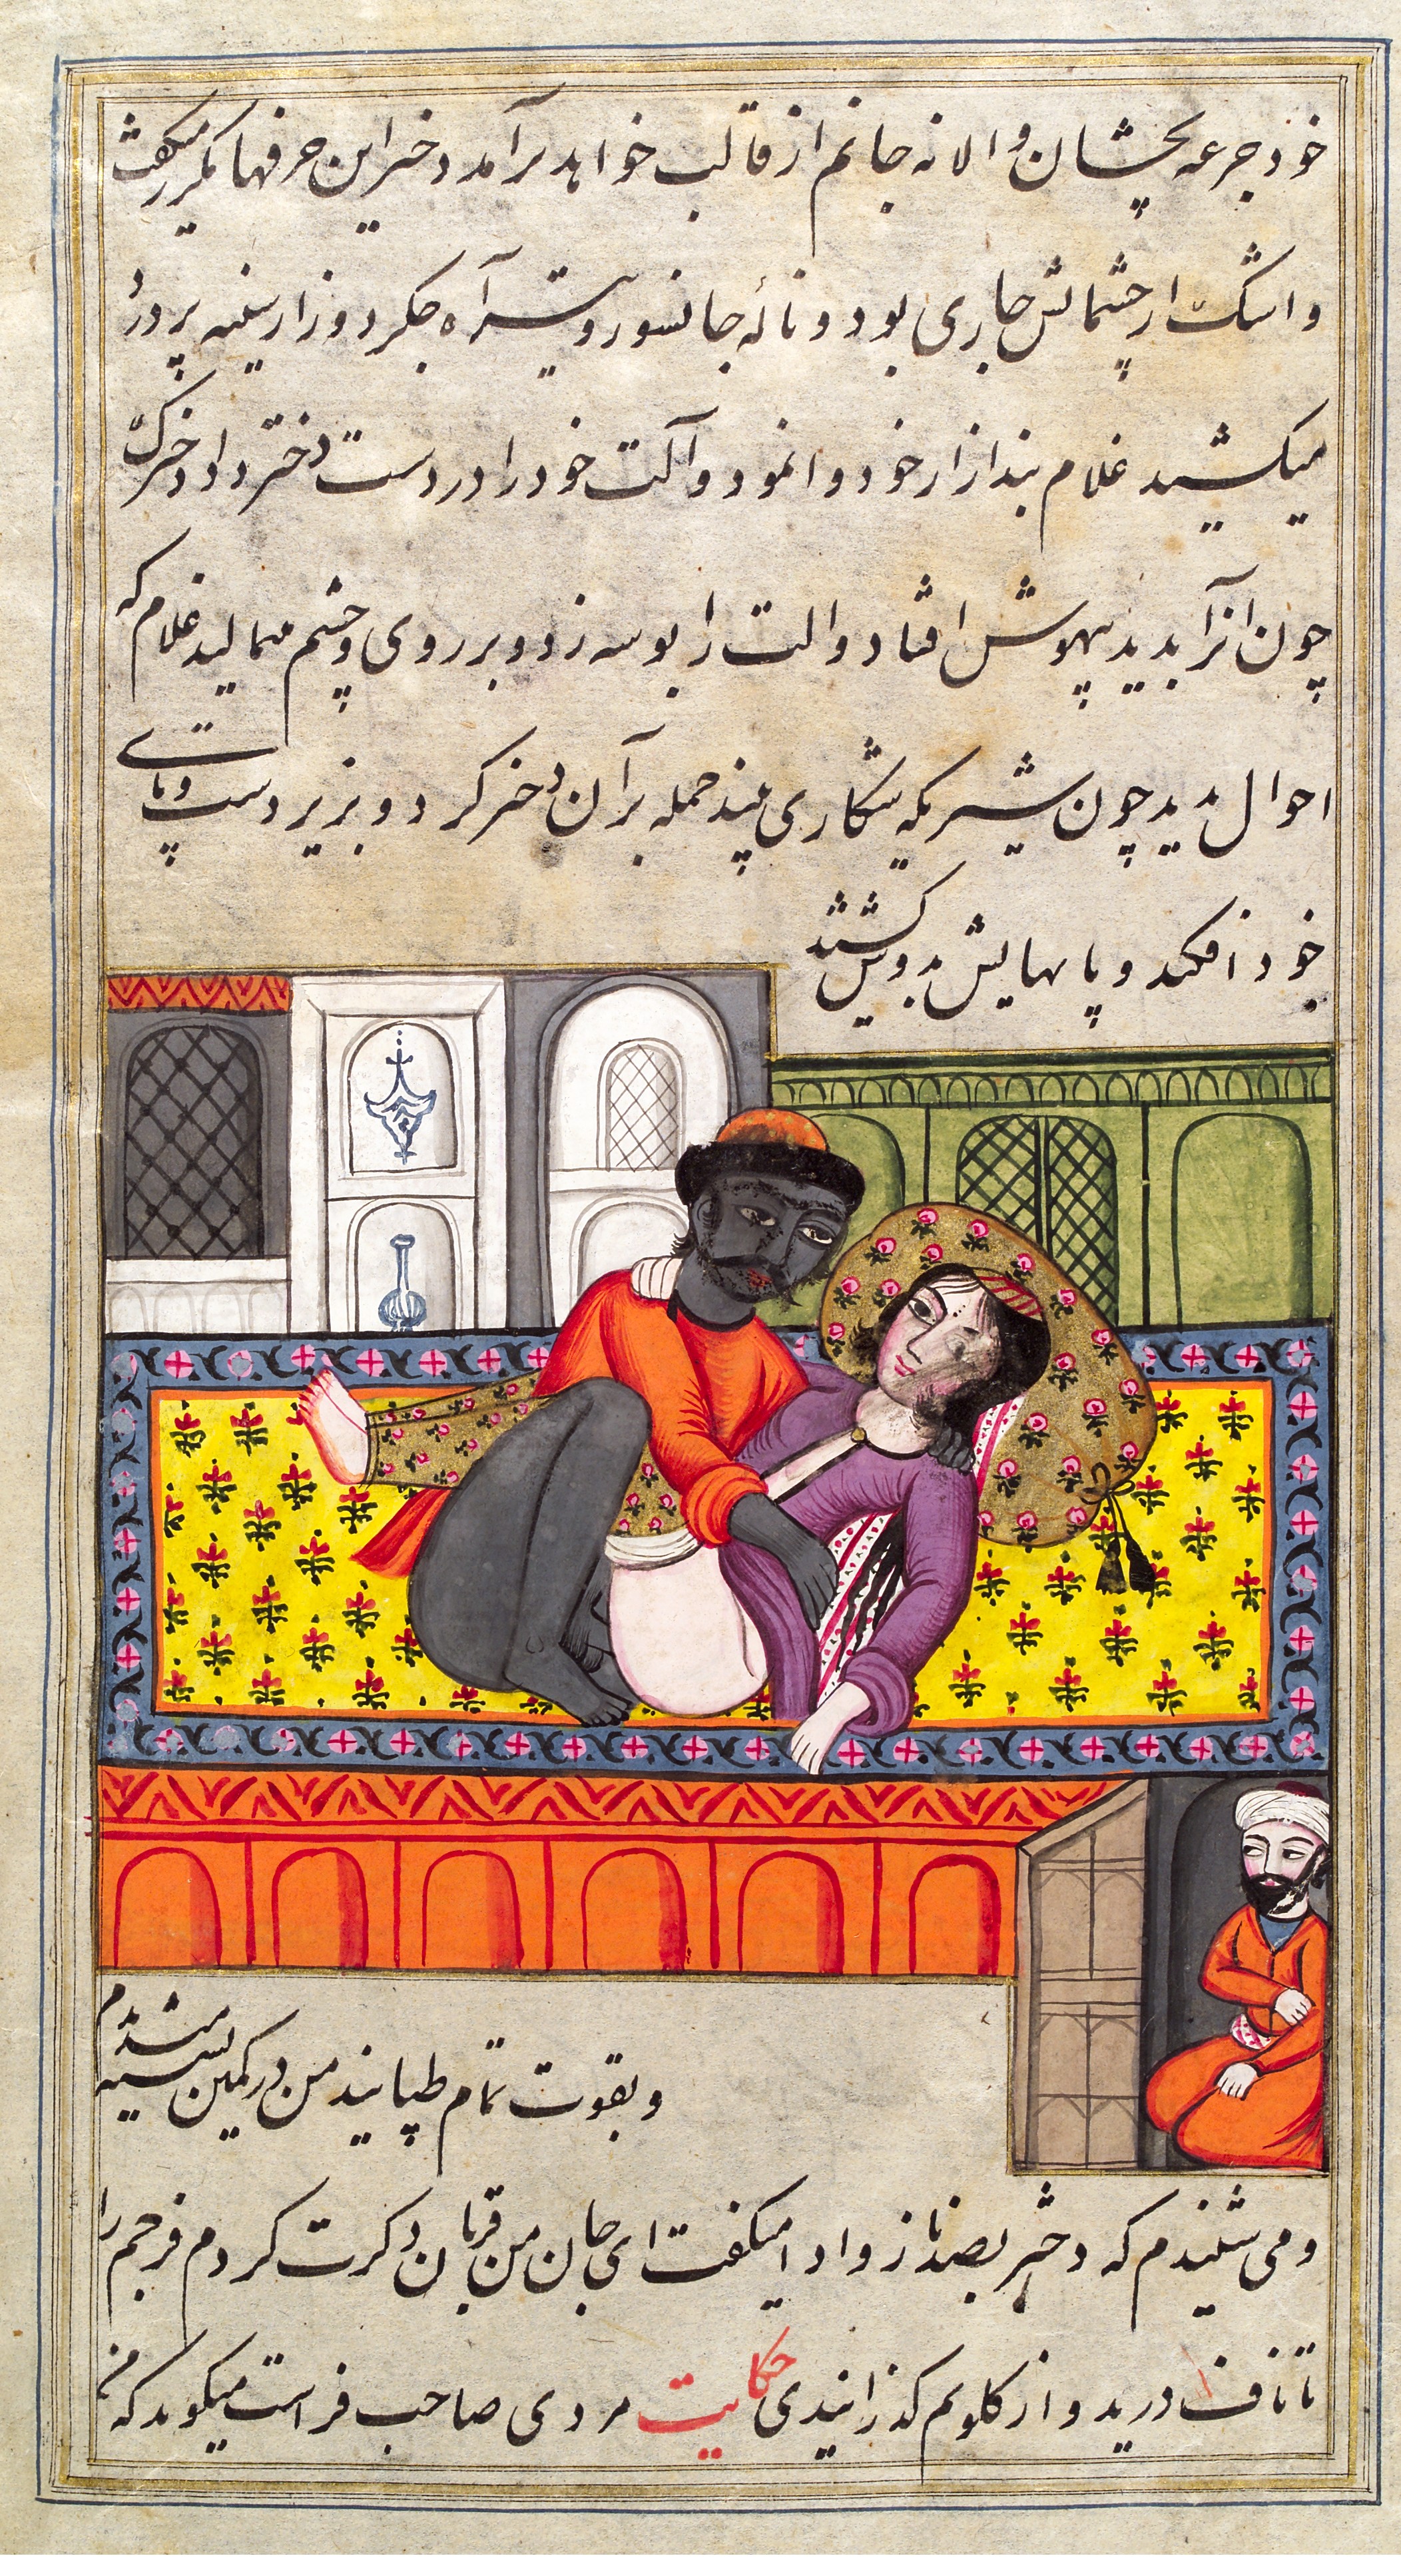 خود جرعه بچشان والا نه جانم از قالب خواهد برآمد دختر این حرفها مکرر میگفت
و اشک از چشمانش جاری بود و نالهٔ جانسوز و تیر آه جگر دوز از سینه پر درد
میکشید غلام بند ازار خود وا نمود و آلت خود را در دست دختر داد دخترک
چون آنرا بدید بیهوش افتاد و الت را بوسه زد و بر روی و چشم میمالید غلام که
احوال بدید چون شیریکه شکاری بیند حمله بر آن دختر کرد و بزیر دست و پای
خود افکند و پاهایش بدوش کشید
و بقوت تمام طپانید من در کمین نشسته میدیدم
و می شنیدم که دختر بصد ناز و ادا میگفت ای جان من قربان ذکرت کردم فرجم را
تا ناف درید و از گلویم گذرانیدی حکایت مردی صاحب فراست میگوید که